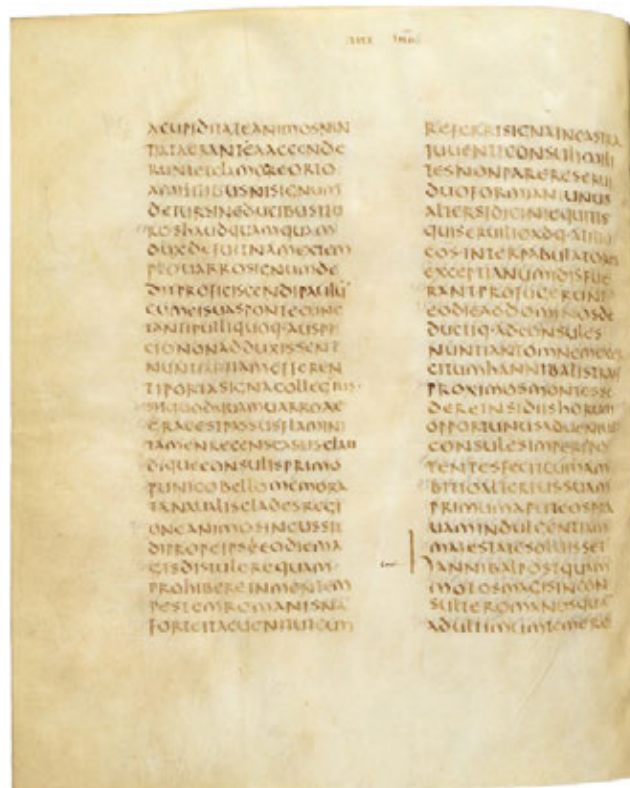 ACUPIDITATEANIMOSNIN
TIATAERANTEAACCENDE
RUNTETCLAMOREORTO
AMILITIBUSNISIGNUM
DETURSINEDUCIBUSITU
ROSHAUDQUAMQUAM
DUXDEFUITNAMEXTEM
PLOUARROSIGNUMDE
DITPROFICISCENDIPAULU
CUMEISUASPONTECUNC
TANTIPULLIQUOQ·AUSPI
CIONONADDUXISSENT
NUNTIARIIAMEFEREN
TIPORTASIGNACOLLEGIUS·
GRAEESTPASSUSFLAMINI
TAMENRECENSCASUSCLAU
DIQUECONSULISPRIMO
PUNICOBELLOMEMORA
TANAUALISCLADESREGI
ONEANIMOSINCUSSIT
DIPROPEIPSEEODIEMA
GISDISTULEREQUAM
PROHIBEREINMENTEM
PESTEMROMANISNA
FORTEITAEUENITUTCUM
REFERRISIGNAINCASTRA
IUUENTICONSULIMILI
TESNONPARERESERUI
DUOFORMIANIUNUS
ALTERSIDICINIEQUITIS
QUISERUILIOADQ·ATILIO
COS·INTERPABULATORES
EXCEPTIANUMIDISFUE
RANTPROFUGERUNT
EODIEADDOMINOSDE
DUCTIQ·ADCONSULES
NUNTIANTOMNEMEXER
CITUMHANNIBALISTRAS
PROXIMOSMONTESSE
DEREINSIDIISHORUM
OPPORTUNUSADUENTUS
CONSULESIMPERIPO
TENTESFECITCUMAM
BITIOALTERIUSSUAM
PRIMUMAPUTEOSPRA
UAMINDULGENTIAM
MAIESTATESOLUISSET
HANNIBALPOSTQUAM
MOTOSMAGISINCON
SULTEROMANOSQUA
ADULTIMUMTEMERE